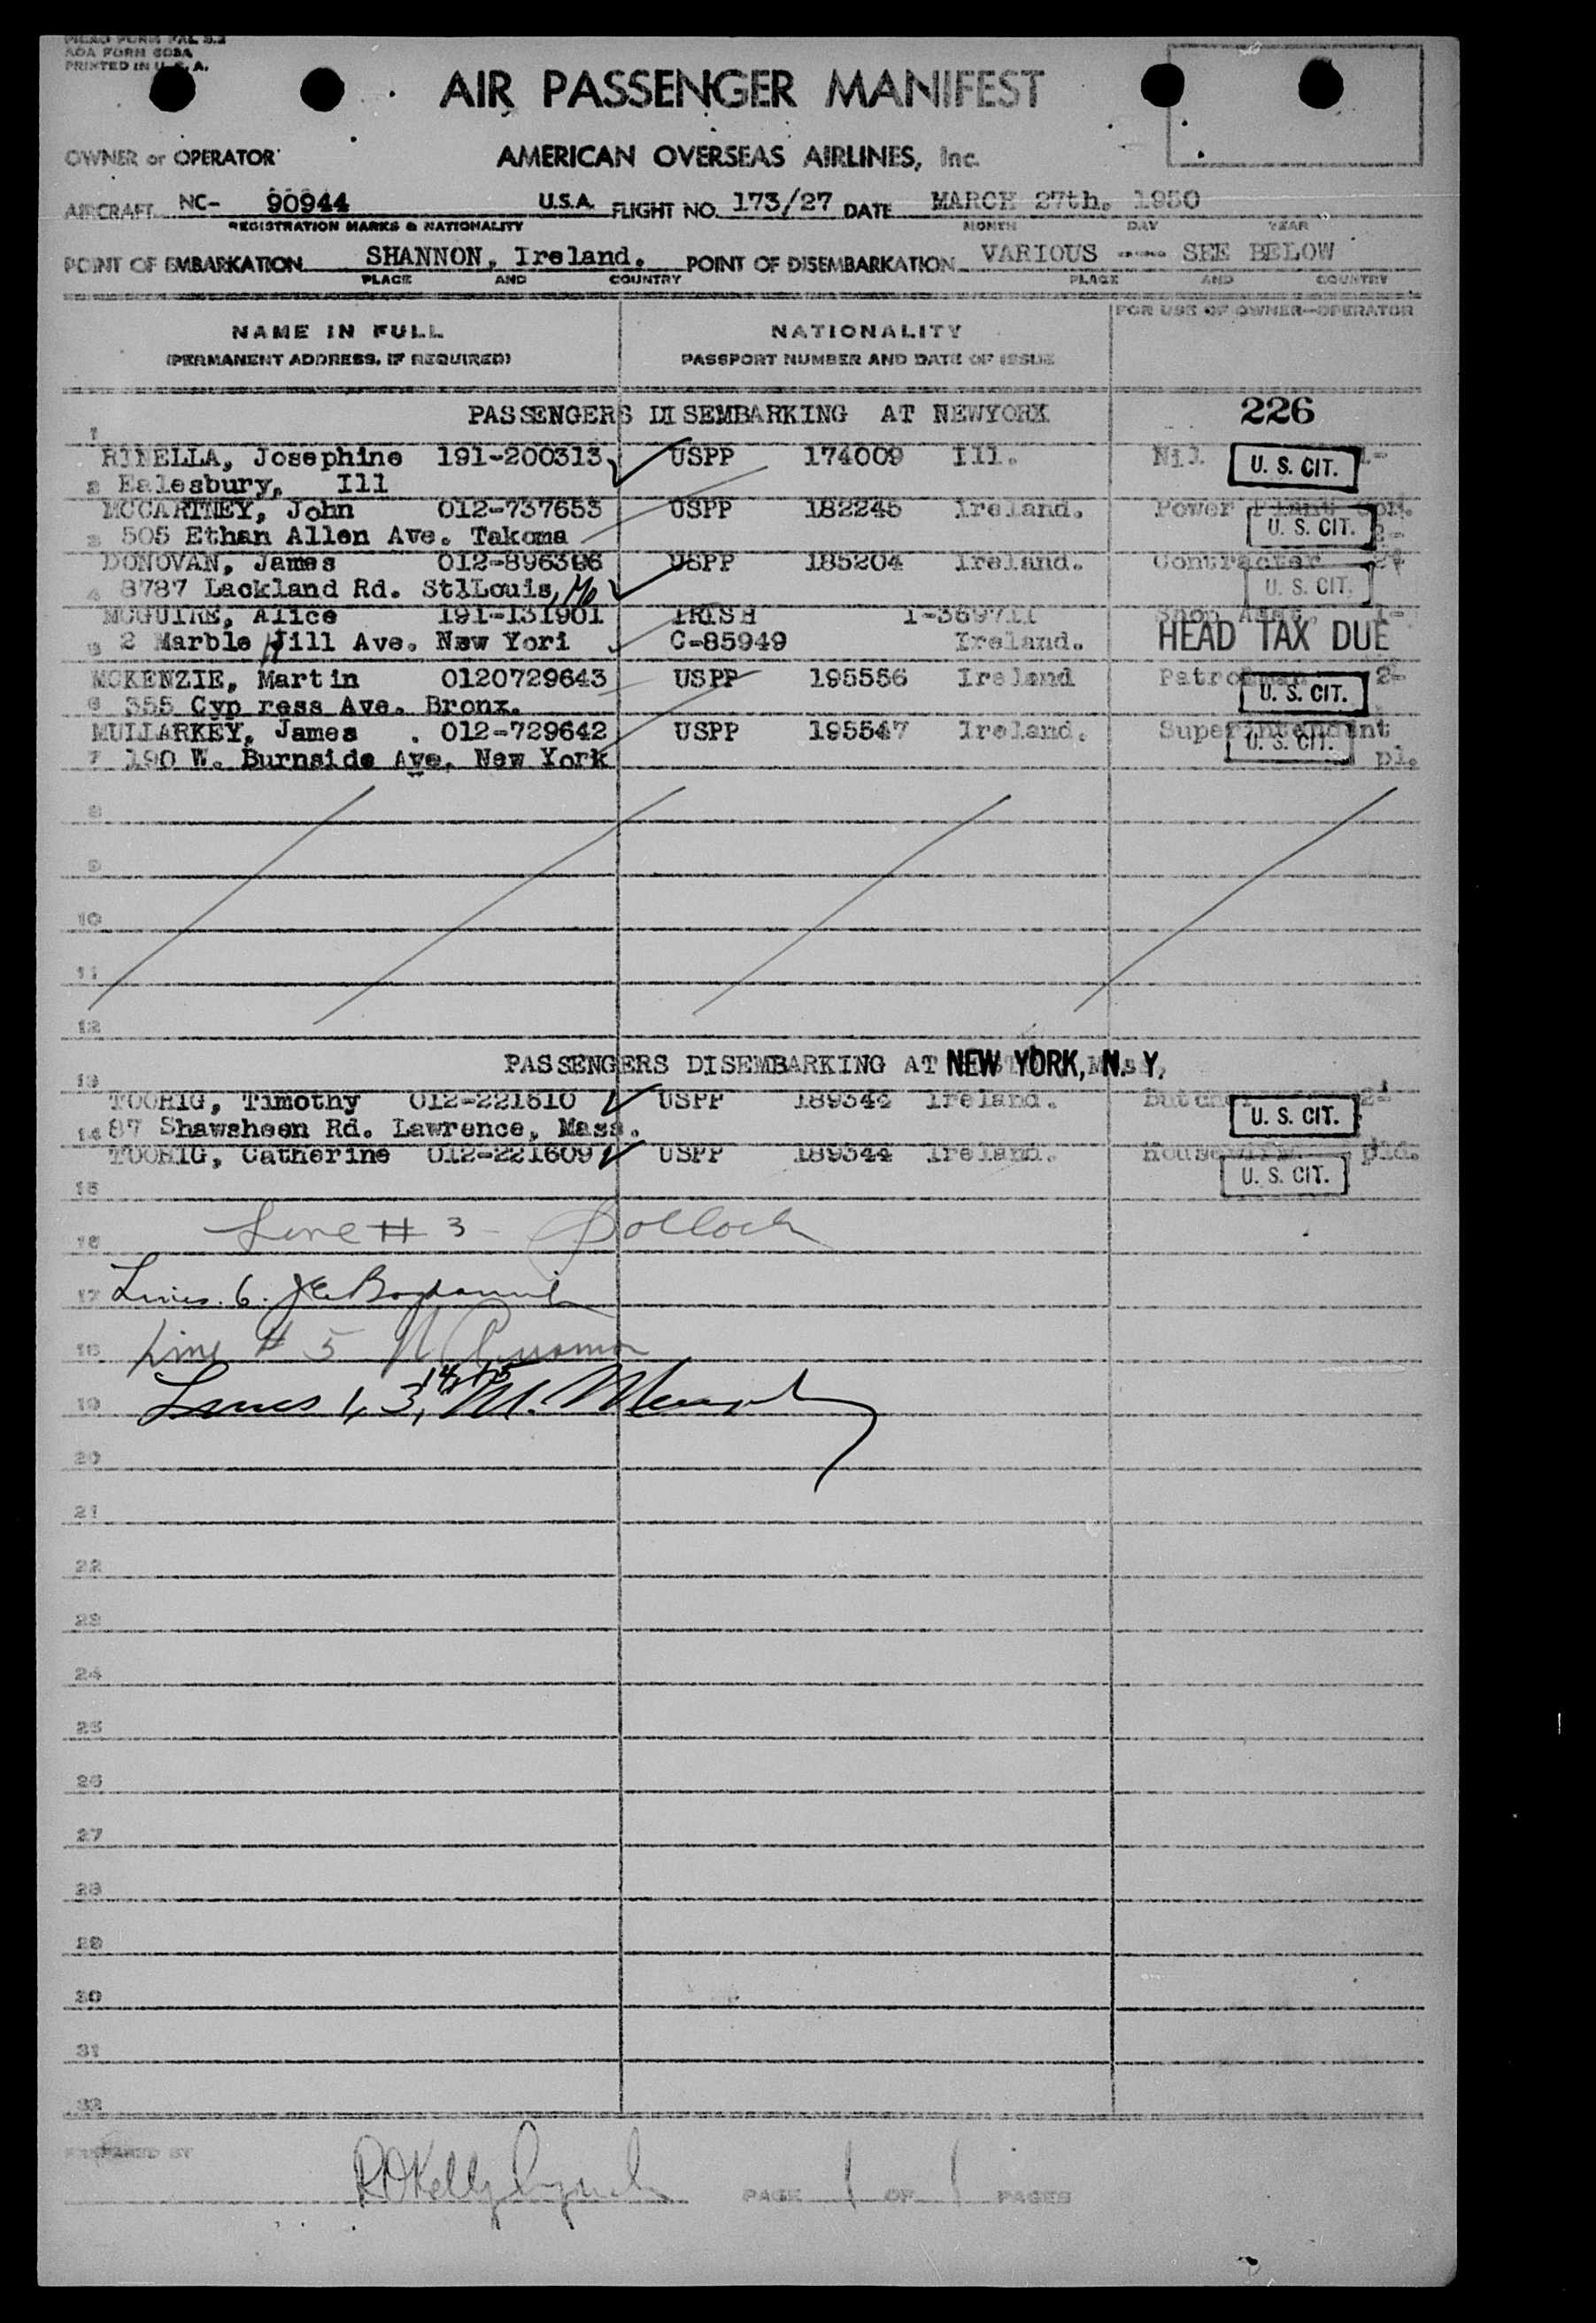 PICAO FORM PAL 2.2
AOA FORM 603A
PRINTED IN U. S. A.
AIR PASSENGER MANIFEST
OWNER or OPERATOR AMERICAN OVERSEAS AIRLINES, Inc.
AIRCRAFT NC- 90944 U.S.A. FLIGHT NO. 173/27 DATE MARCH 27th. 1950
REGISTRATION MARKS & NATIONALITY MONTH DAY YEAR
POINT OF EMBARKATION SHANNON, Ireland. POINT OF DISEMBARKATION VARIOUS ---- SEE BELOW
PLACE AND COUNTRY PLACE AND COUNTRY
FOR USE OF OWNER—OPERATOR
NAME IN FULL NATIONALITY
(PERMANENT ADDRESS, IF REQUIRED) PASSPORT NUMBER AND DATE OF ISSUE
PASSENGERS DISEMBARKING AT NEWYORK 226
1
RINELLA, Josephine 191-200313 USPP 174009 Ill. Nil U. S. CIT. 1-
2 Ealesbury, Ill
MCCARTNEY, John 012-737653 USPP 182245 Ireland. Power Plant
3 505 Ethan Allen Ave. Takoma U. S. CIT. 2-
DONOVAN, James 012-896396 USPP 185204 Ireland. Contracter 2
4 8787 Lackland Rd. StlLouis, Mo U. S. CIT.
MCGUIRE, Alice 191-131901 IRISH 1-369711 Shop Asst. 1-
5 2 Marble Hill Ave. New Yori C-85949 Ireland. HEAD TAX DUE
MCKENZIE, Martin 0120729643 USPP 195556 Ireland Patrolman 2-
6 355 Cyp ress Ave. Bronx. U. S. CIT.
MULLARKEY, James . 012-729642 USPP 195547 Ireland. Superintendent
U. S. CIT.
7 190 W. Burnside Ave. New York pl.
8
9
10
11
12
PASSENGERS DISEMBARKING AT NEW YORK, N. Y.
13
TOOHIG, Timothy 012-221610 USPP 189344 Ireland. Butcher 2-
14 87 Shawsheen Rd. Lawrence, Mass. U. S. CIT.
TOOHIG, Catherine 012-221609 USPP 189344 Ireland. Housewife. pld.
15 U. S. CIT.
16 Line # 3 - Pollock
17 Lines. 6.
18 Line # 5
14, 15
19 Lines 1, 3, M.
20
21
22
23
24
25
26
27
28
29
30
31
32
PREPARED BY
R O'Kelly Lynch PAGE 1 OF 1 PAGES